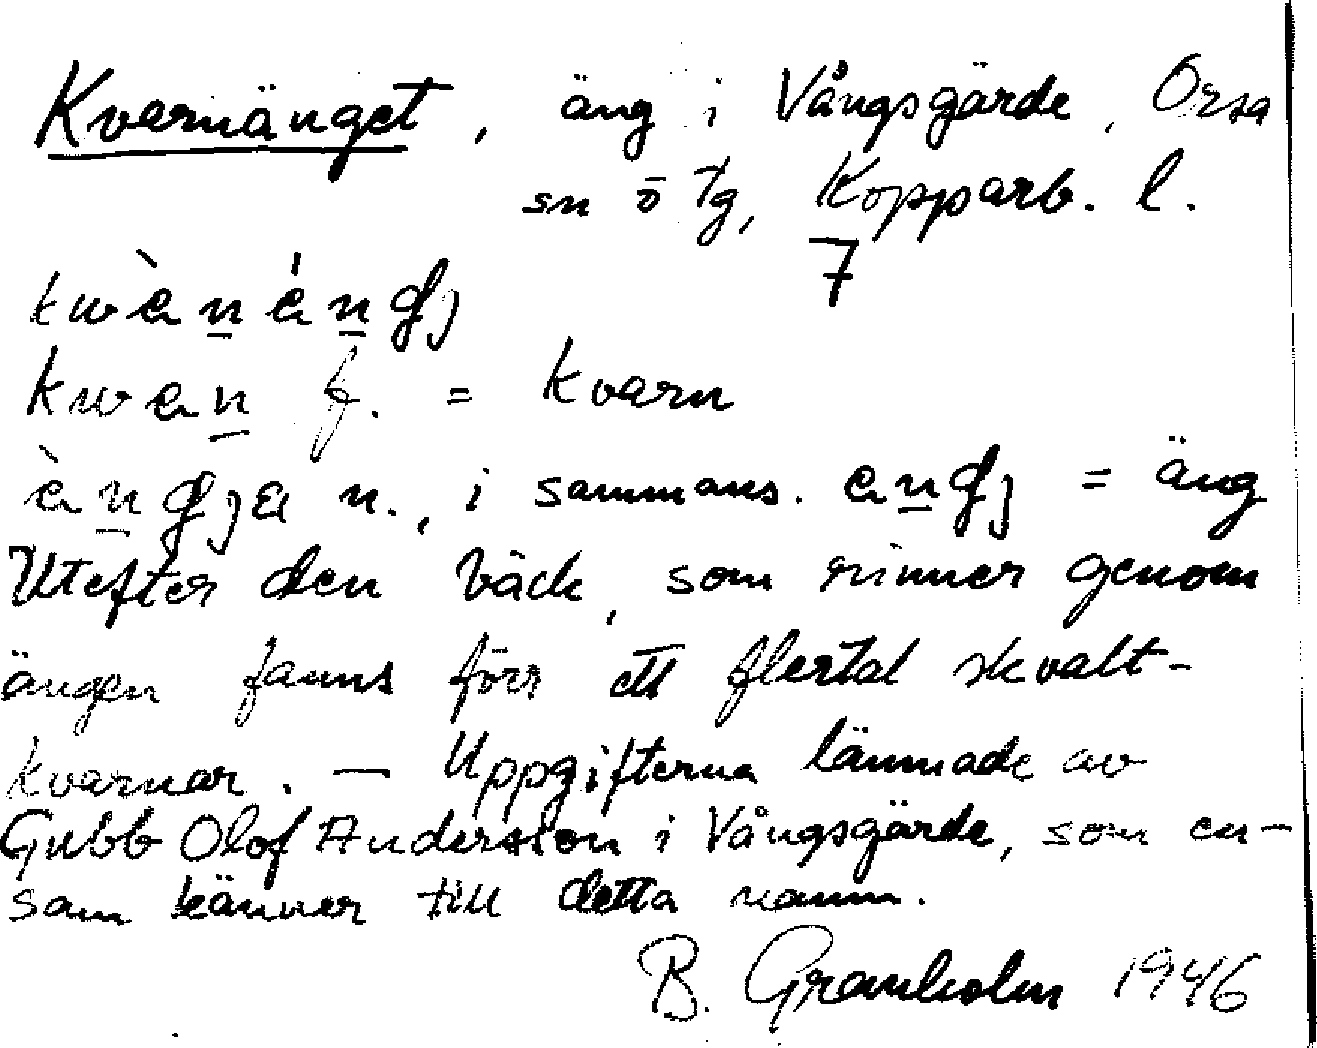 Kvarnänget, äng i Vångsgärde, Orsa
sn o tg, Kopparb. l.
7
kwa n f. = kvarn
n., i sammans. = äng
Utefter den bäck, som rinner genom
ängen fanns förr ett flertal skvalt-
kvarnar. — Uppgifterna lämnade av
Gubb Olof Andersson i Vångsgärde, som en-
sam känner till detta namn.
B. Granholm 1946